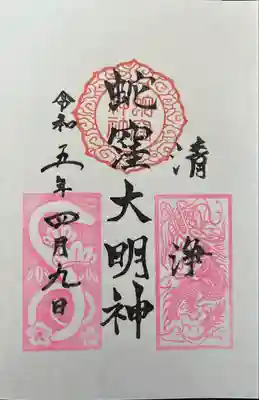 清浄
蛇窪大明神
令和五年四月九日